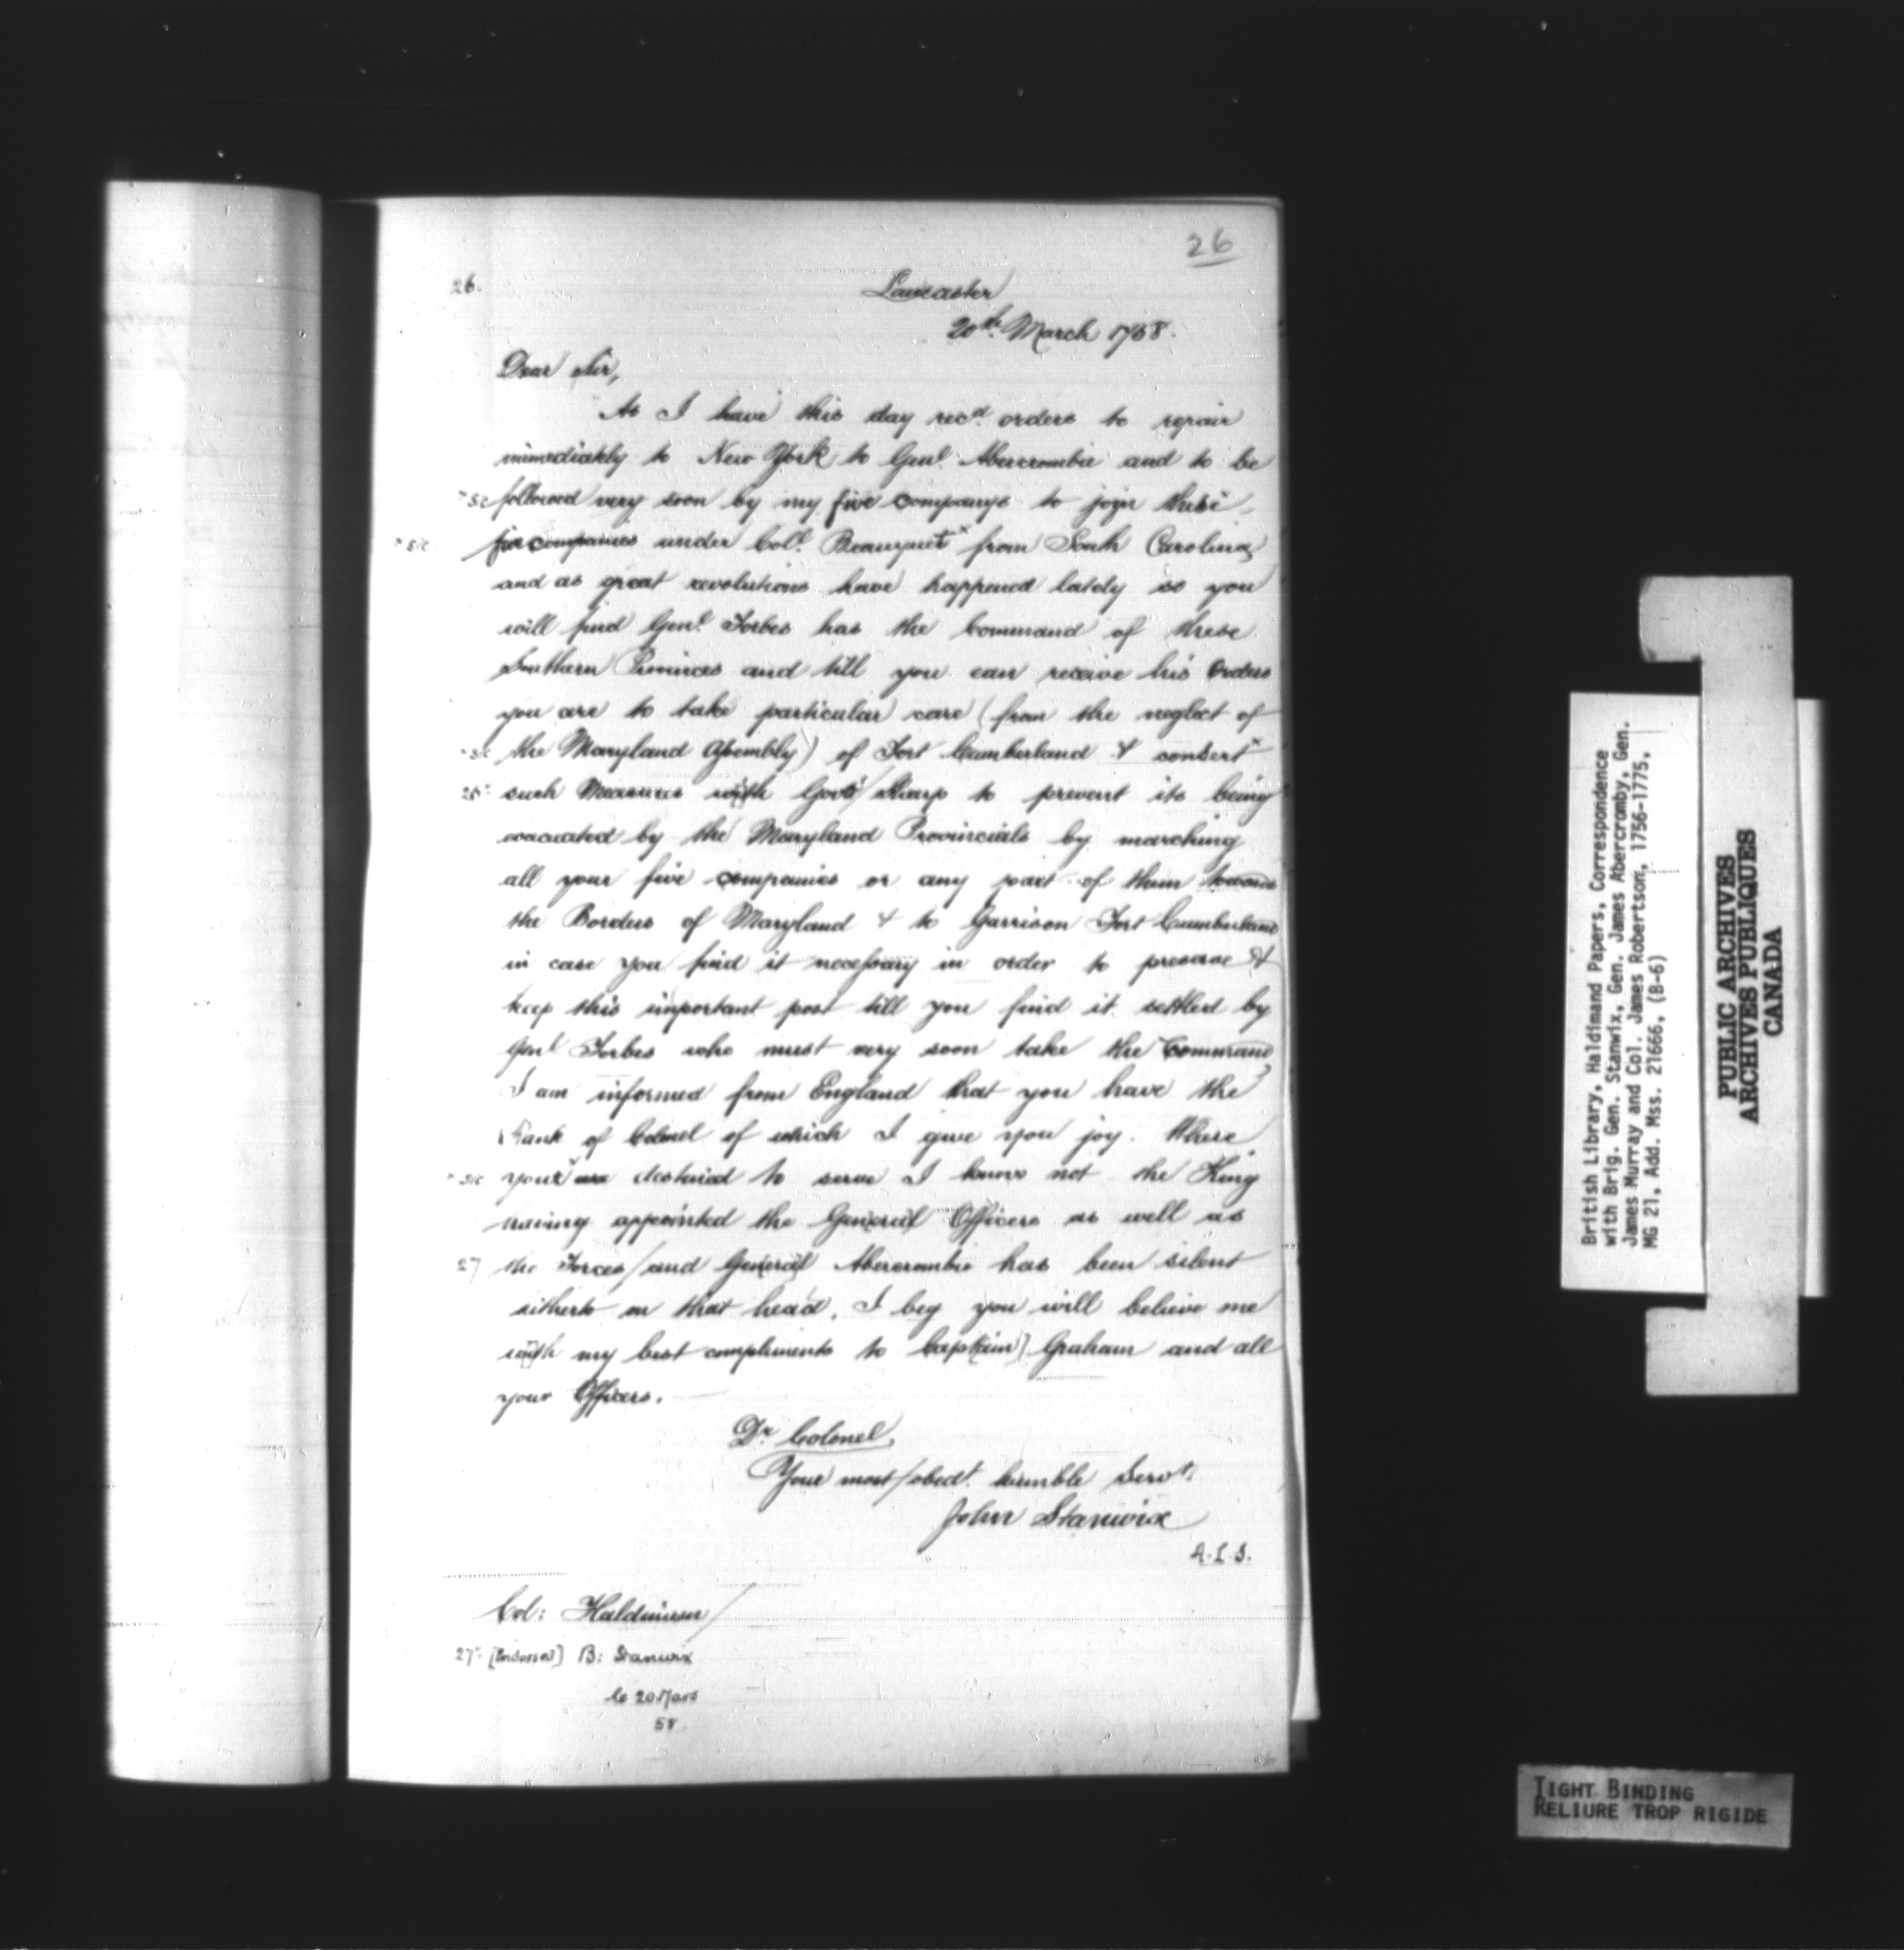 26
26.
Lancaster
20th March 1758.
Dear Sir,
As I have this day recd. orders to repair
immediately to New York to Genl. Abercrombie and to be
* sic followed very soon by my five companys to join these*
* sic. five companies under Coll. Beauquet* from South Carolina,
and as great revolutions have happened lately so you
will find Genl. Forbes has the Command of these
Southern Provinces and till you can receive his Orders
you are to take particular care (from the neglect of
* sic the Maryland Assembly) of Fort Cumberland & consert*
such Measures with Govr/Sharp to prevent its being
evacuated by the Maryland Provincials by marching
all your five companies or any part of them towards
the Borders of Maryland & to Garrison Fort Cumberland
in case you find it necessary in order to preserve &
keep this important post till you find it settled by
Genl Forbes who must very soon take the Command
I am informed from England that you have the
Rank of Colonel of which I give you joy. Where
* sic your* are destined to serve I know not the King
having appointed the General Officers as well as
27 the Forces/and General Abercrombie has been silent
hitherto on that head. I beg you will believe me
with my best compliments to Captain] Graham and all
your Officers.
Dr. Colonel,
Your most/obedt. humble Servt.
John Stanwix
A.L.S.
Col: Haldiman/
[Endorsed] B: Stanwix
le 20 Mars
58.
British Library, Haldimand Papers, Correspondence
with Brig. Gen. Stanwix, Gen. James Abercromby, Gen.
James Murray and Col. James Robertson, 1756-1775,
MG 21, Add. Mss. 21666, (B-6)
PUBLIC ARCHIVES
ARCHIVES PUBLIQUES
CANADA
TIGHT BINDING
RELIURE TROP RIGIDE